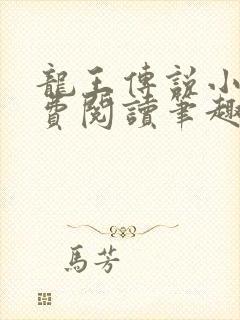 龍王傳說小
費閱讀筆趣
馬芳